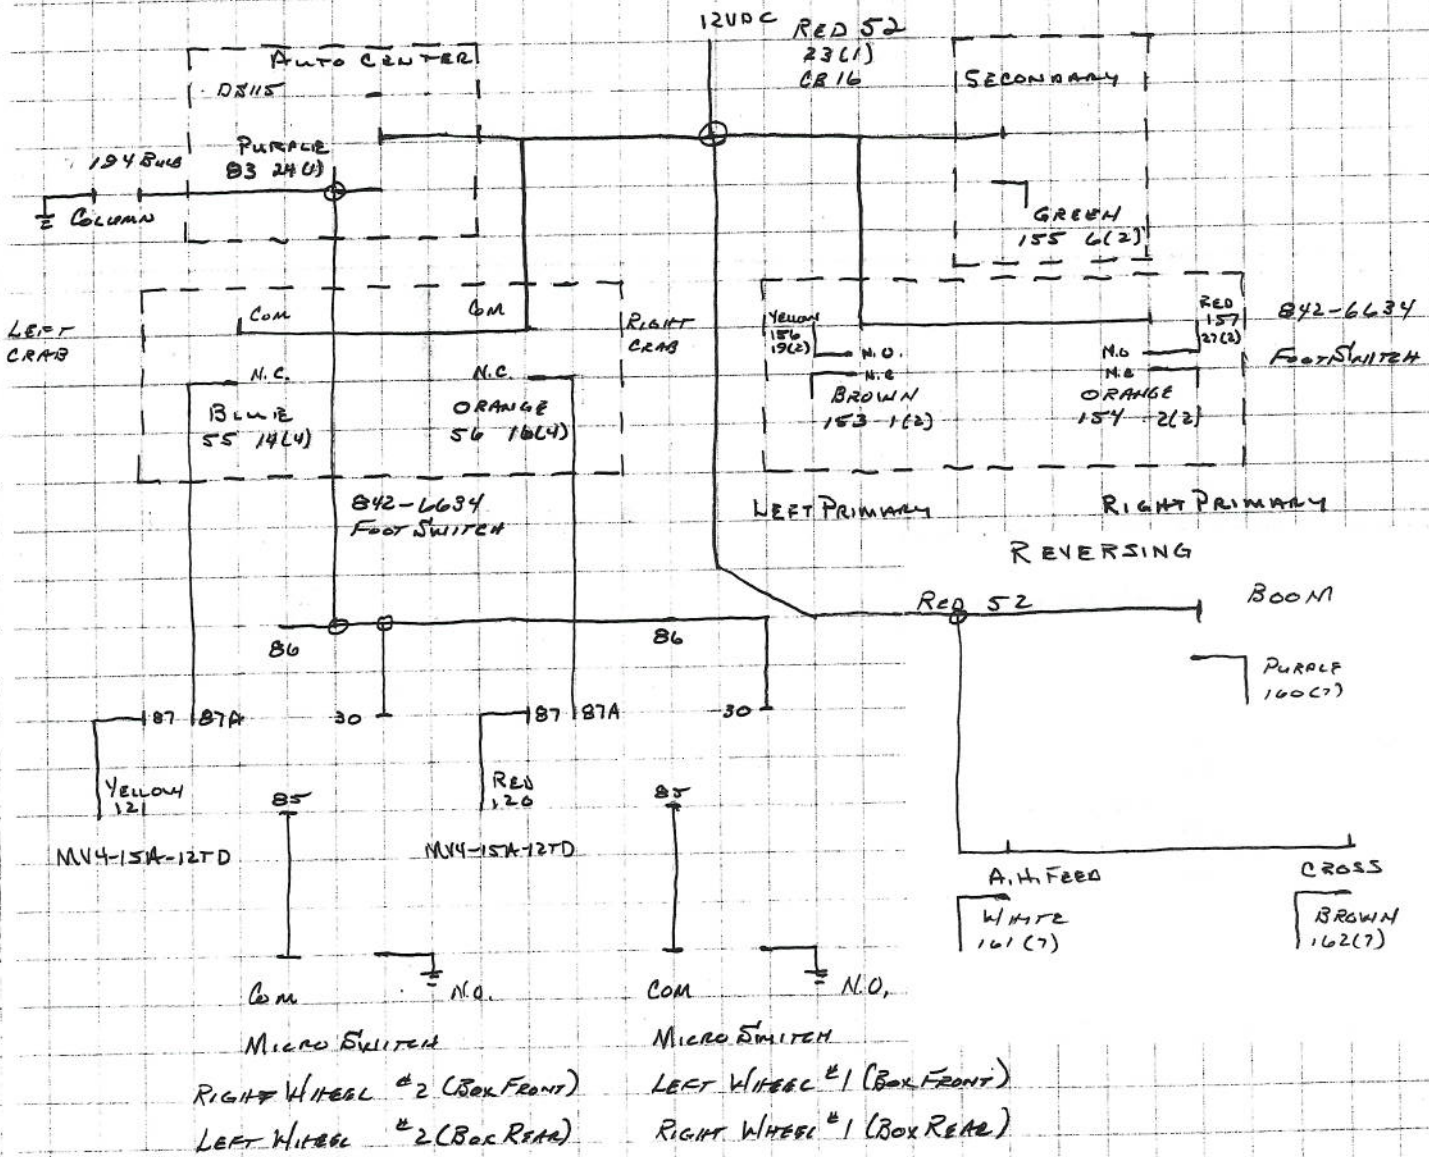 12VDC
RED 52
23(1)
CB 16
AUTO CENTER
DS115
SECONDARY
194 BULB
PURPLE
83 24(1)
COLUMN
GREEN
155 6(2)
LEFT
CRAB
COM
COM
RIGHT
CRAB
YELLOW
156
19(2)
N.O.
N.C
N.O
N.C
RED
157
27(2)
842-6634
FOOT SWITCH
N.C.
N.C.
BLUE
55 14(4)
ORANGE
56 16(4)
BROWN
153 1(2)
ORANGE
154 2(2)
842-6634
FOOT SWITCH
LEFT PRIMARY
RIGHT PRIMARY
REVERSING
RED 52
BOOM
86
86
PURPLE
160(7)
87
87A
30
87
87A
30
YELLOW
121
85
RED
120
85
MV4-15A-12TD
MV4-15A-12TD
A.H. FEED
CROSS
WHITE
161(7)
BROWN
162(7)
COM
N.O.
COM
N.O.
MICRO SWITCH
MICRO SWITCH
RIGHT WHEEL #2 (BOX FRONT)
LEFT WHEEL #1 (BOX FRONT)
LEFT WHEEL #2 (BOX REAR)
RIGHT WHEEL #1 (BOX REAR)